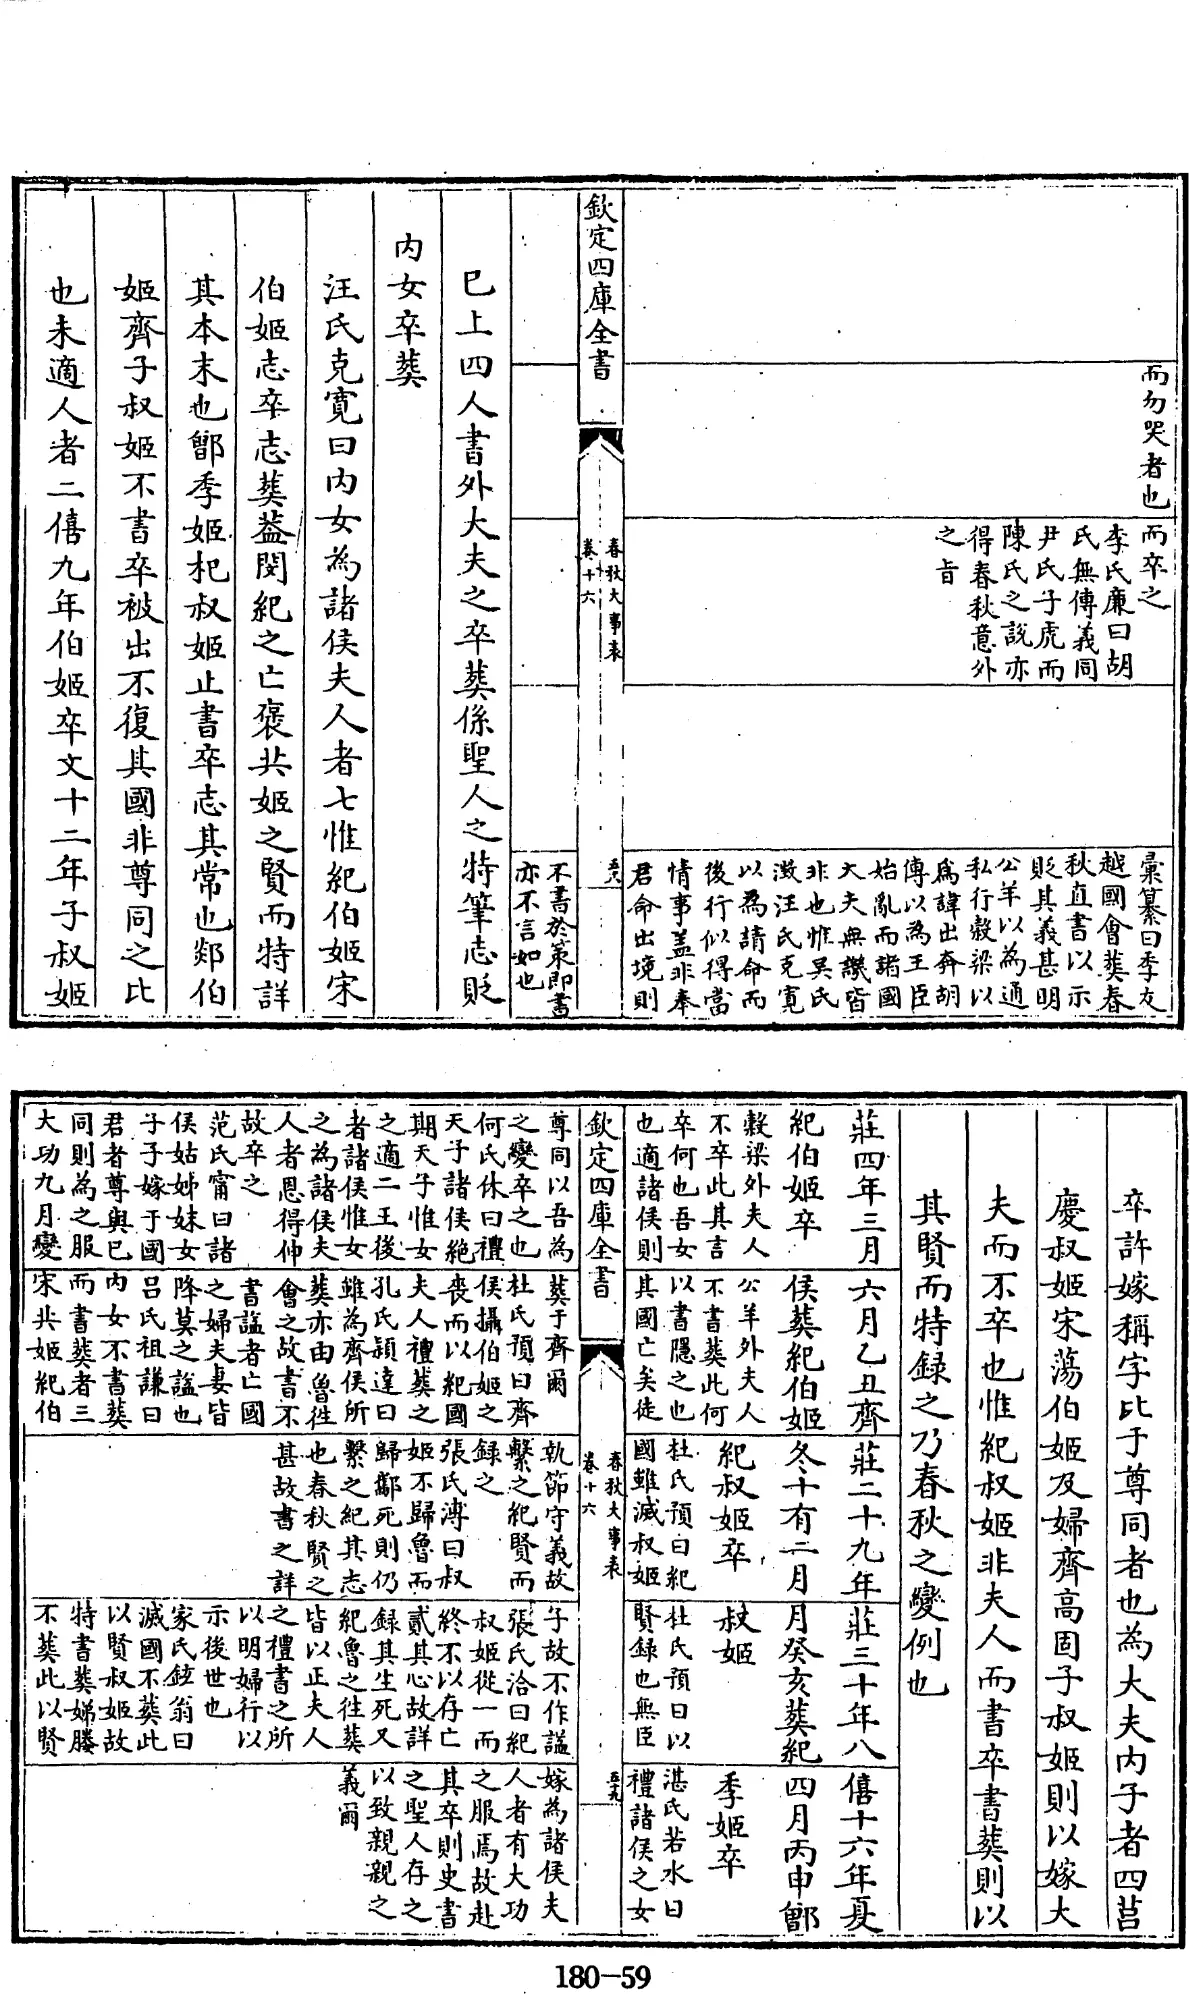 而勿哭者也
而卒之
李氏廉曰胡
氏無傳義同
尹氏子虎而
陳氏之說亦
得春秋意外
之旨
彙纂曰季友
越國會葬春
秋直書以示
貶其義甚明
公羊以為通
私行穀梁以
為諱出奔胡
傳以為王臣
始亂而諸國
大夫無譏皆
非也惟吳氏
澂汪氏克寬
以為請命而
後行似得當
情事蓋非奉
君命出境則
欽定四庫全書
春秋大事表
卷十六
不書於策即書
亦不言如也
已上四人書外大夫之卒葬係聖人之特筆志貶
内女卒葬
汪氏克寬曰内女為諸侯夫人者七惟紀伯姬宋
伯姬志卒志葬葢閔紀之亡褒共姬之賢而特詳
其本末也鄫季姬杞叔姬止書卒志其常也郯伯
姬齊子叔姬不書卒被出不復其國非尊同之比
也未適人者二僖九年伯姬卒文十二年子叔姬
卒許嫁稱字比于尊同者也為大夫内子者四莒
慶叔姬宋蕩伯姬及婦齊高固子叔姬則以嫁大
夫而不卒也惟紀叔姬非夫人而書卒書葬則以
其賢而特録之乃春秋之變例也
莊四年三月
紀伯姬卒
穀梁外夫人
不卒此其言
卒何也吾女
也適諸侯則
六月乙丑齊
侯葬紀伯姬
公羊外夫人
不書葬此何
以書隱之也
其國亡矣徒
莊二十九年
冬十有二月
紀叔姬卒
杜氏預曰紀
國雖滅叔姬
莊三十年八
月癸亥葬紀
叔姬
杜氏預曰以
賢録也無臣
僖十六年夏
四月丙申鄫
季姬卒
湛氏若水曰
禮諸侯之女
欽定四庫全書
春秋大事表
卷十六
五九
尊同以吾為
之變卒之也
何氏休曰禮
天子諸侯絶
期天子惟女
之適二王後
者諸侯惟女
之為諸侯夫
人者恩得伸
故卒之
范氏甯曰諸
侯姑姊妹女
子子嫁于國
君者尊與己
同則為之服
大功九月變
葬于齊爾
杜氏預曰齊
侯攝伯姬之
喪而以紀國
夫人禮葬之
孔氏頴達曰
雖為齊侯所
葬亦由魯往
會之故書不
書謚者亡國
之婦夫妻皆
降莫之謚也
吕氏祖謙曰
内女不書葬
而書葬者三
宋共姬紀伯
執節守義故
繫之紀賢而
録之
張氏溥曰叔
姬不歸魯而
歸酅死則仍
繫之紀其志
也春秋賢之
甚故書之詳
子故不作謚
張氏洽曰紀
叔姬從一而
終不以存亡
貳其心故詳
録其生死又
紀魯之往葬
皆以正夫人
之禮書之所
以明婦行以
示後世也
家氏鉉翁曰
滅國不葬此
以賢叔姬故
特書葬娣媵
不葬此以賢
嫁為諸侯夫
人者有大功
之服焉故赴
其卒則史書
之聖人存之
以致親親之
義爾
180—59